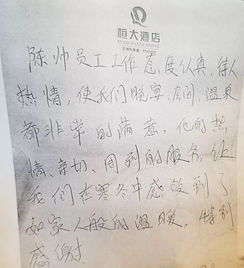 恒大酒店
陈帅员工工作态度认真,待人
热情,使我们晚宴、房间、温泉
都非常的满意。他的热
情、亲切、周到的服务,让
我们在寒冬中感受到了
如家人般的温暖,特别
感谢.